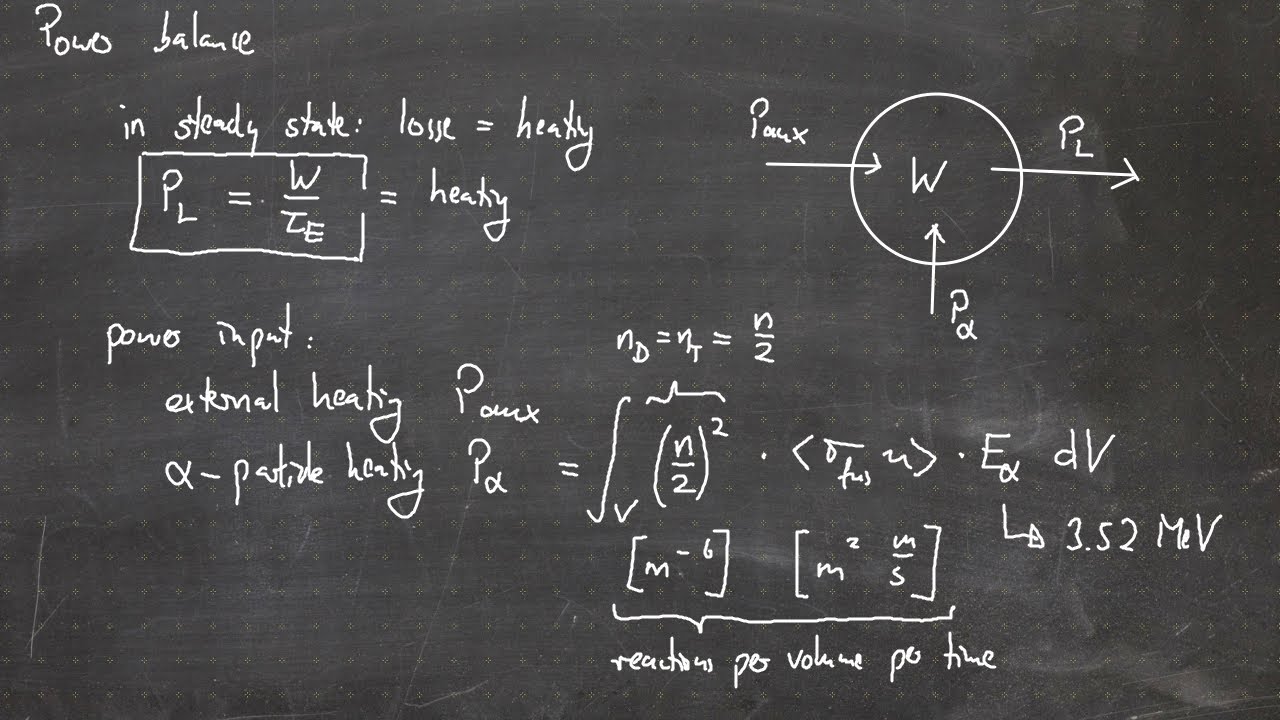 Power balance
in steady state: losse = heating
P_L = W/τ_E = heating
P_aux
W
P_L
P_α
power input:
n_D = n_T = n/2
external heating P_aux
α-particle heating P_α = ∫_V (n/2)² · <σ_fus u> · E_α dV
↳ 3.52 MeV
[m⁻⁶] [m² m/s]
reactions per volume per time